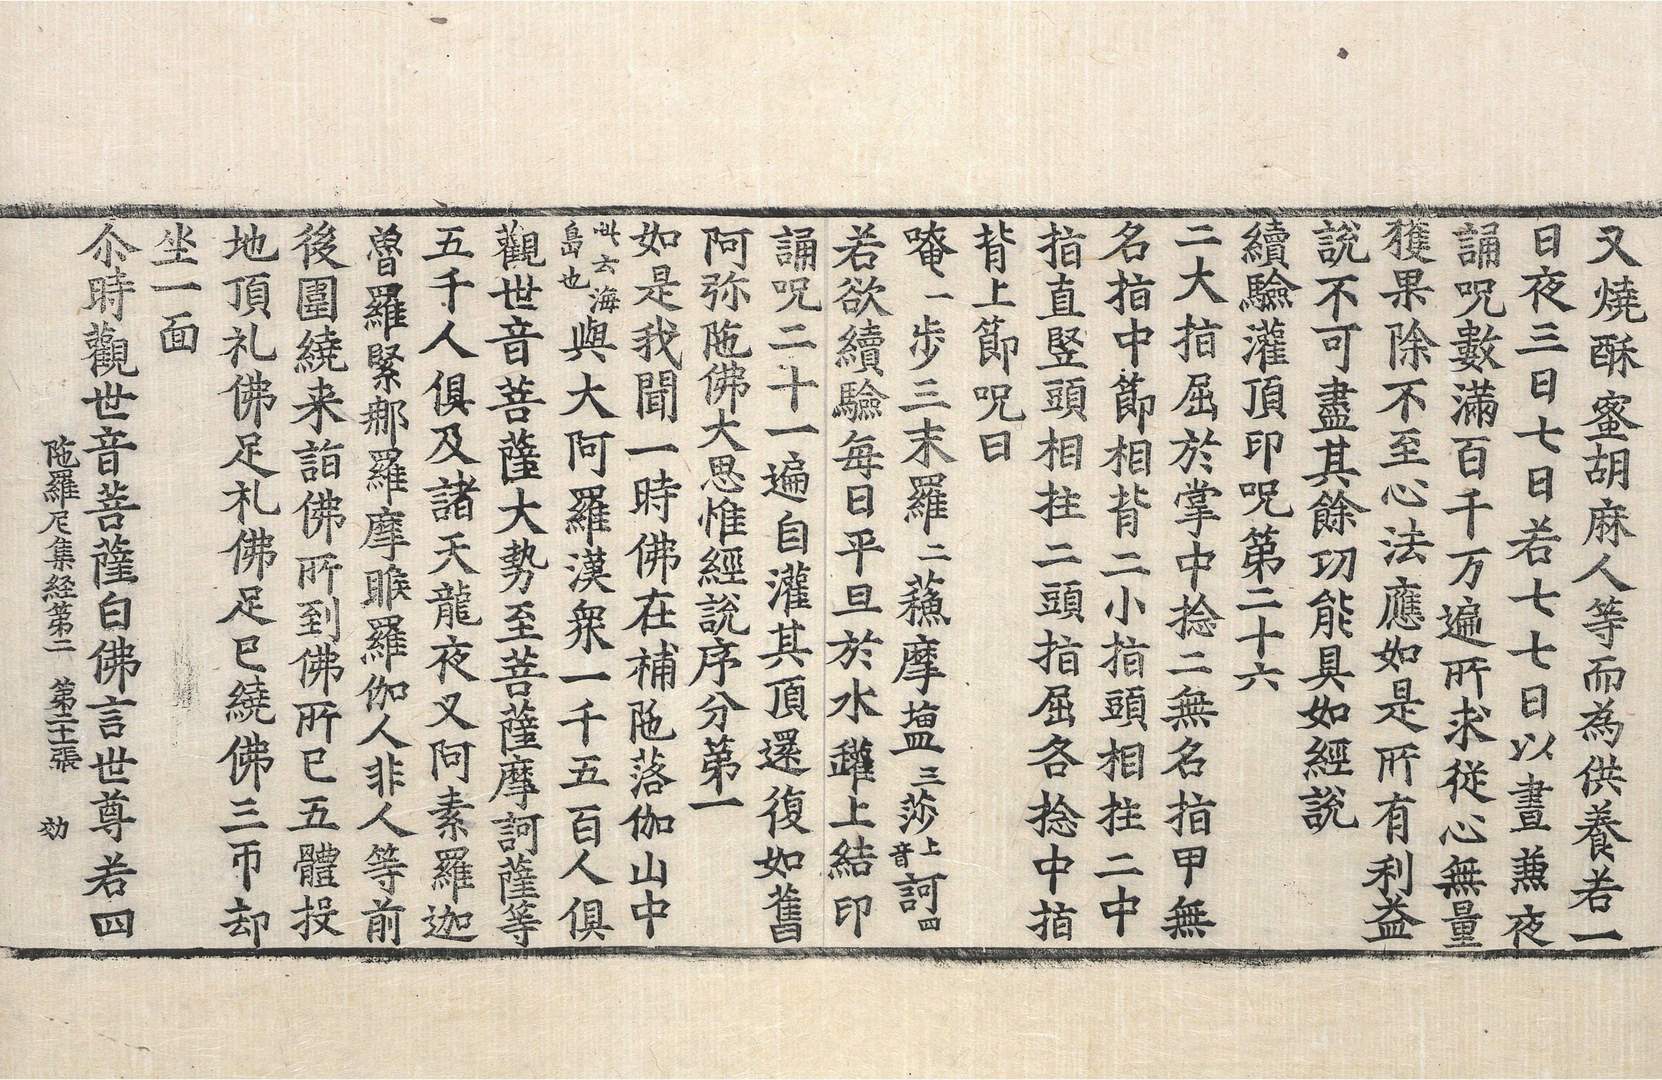 又燒酥蜜胡麻人等而為供養若一
日夜三日七日若七七日以晝兼夜
誦呪數滿百千万遍所求從心無量
獲果除不至心法應如是所有利益
說不可盡其餘功能具如經說
續驗灌頂印呪第二十六
二大指屈於掌中捻二無名指甲無
名指中節相背二小指頭相拄二中
指直竪頭相拄二頭指屈各捻中指
背上節呪曰
唵一步三末羅二蘓摩塩三莎上音訶四
若欲續驗每日平旦於水鑵上結印
誦呪二十一遍自灌其頂還復如舊
阿弥陁佛大思惟經說序分第一
如是我聞一時佛在補陁落伽山中
此云海島也與大阿羅漢衆一千五百人俱
觀世音菩薩大勢至菩薩摩訶薩等
五千人俱及諸天龍夜叉阿素羅迦
魯羅緊郍羅摩睺羅伽人非人等前
後圍繞来詣佛所到佛所已五體投
地頂礼佛足礼佛足已繞佛三帀却
坐一面
尒時觀世音菩薩白佛言世尊若四
陁羅尼集経第二 第二十張 㓛